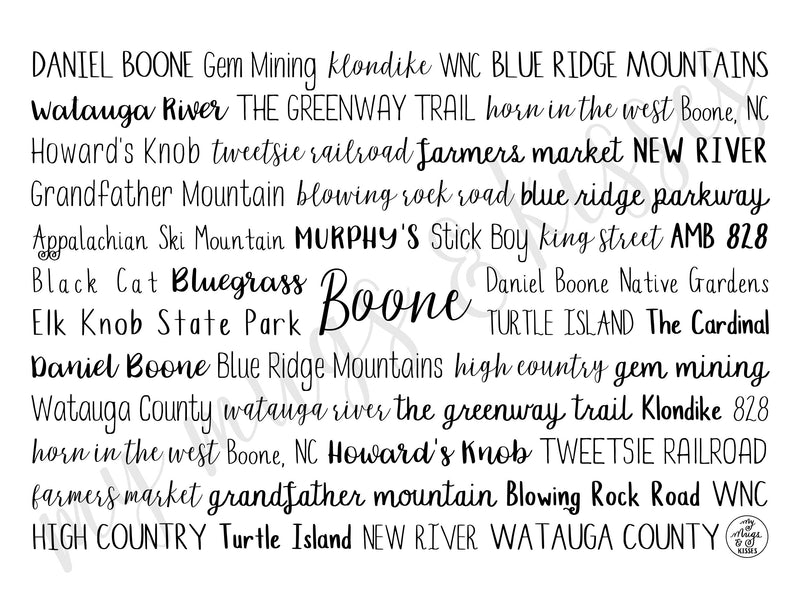 DANIEL BOONE Gem Mining klondike WNC BLUE RIDGE MOUNTAINS
Watauga River THE GREENWAY TRAIL horn in the west Boone, NC
Howard's Knob tweetsie railroad farmers market NEW RIVER
Grandfather Mountain blowing rock road blue ridge parkway
Appalachian Ski Mountain MURPHY'S Stick Boy king street AMB 828
Black Cat Bluegrass Boone Daniel Boone Native Gardens
Elk Knob State Park TURTLE ISLAND The Cardinal
Daniel Boone Blue Ridge Mountains high country gem mining
Watauga County watauga river the greenway trail Klondike 828
horn in the west Boone, NC Howard's Knob TWEETSIE RAILROAD
farmers market grandfather mountain Blowing Rock Road WNC
HIGH COUNTRY Turtle Island NEW RIVER WATAUGA COUNTY
my Mugs & KISSES
my mugs & kisses